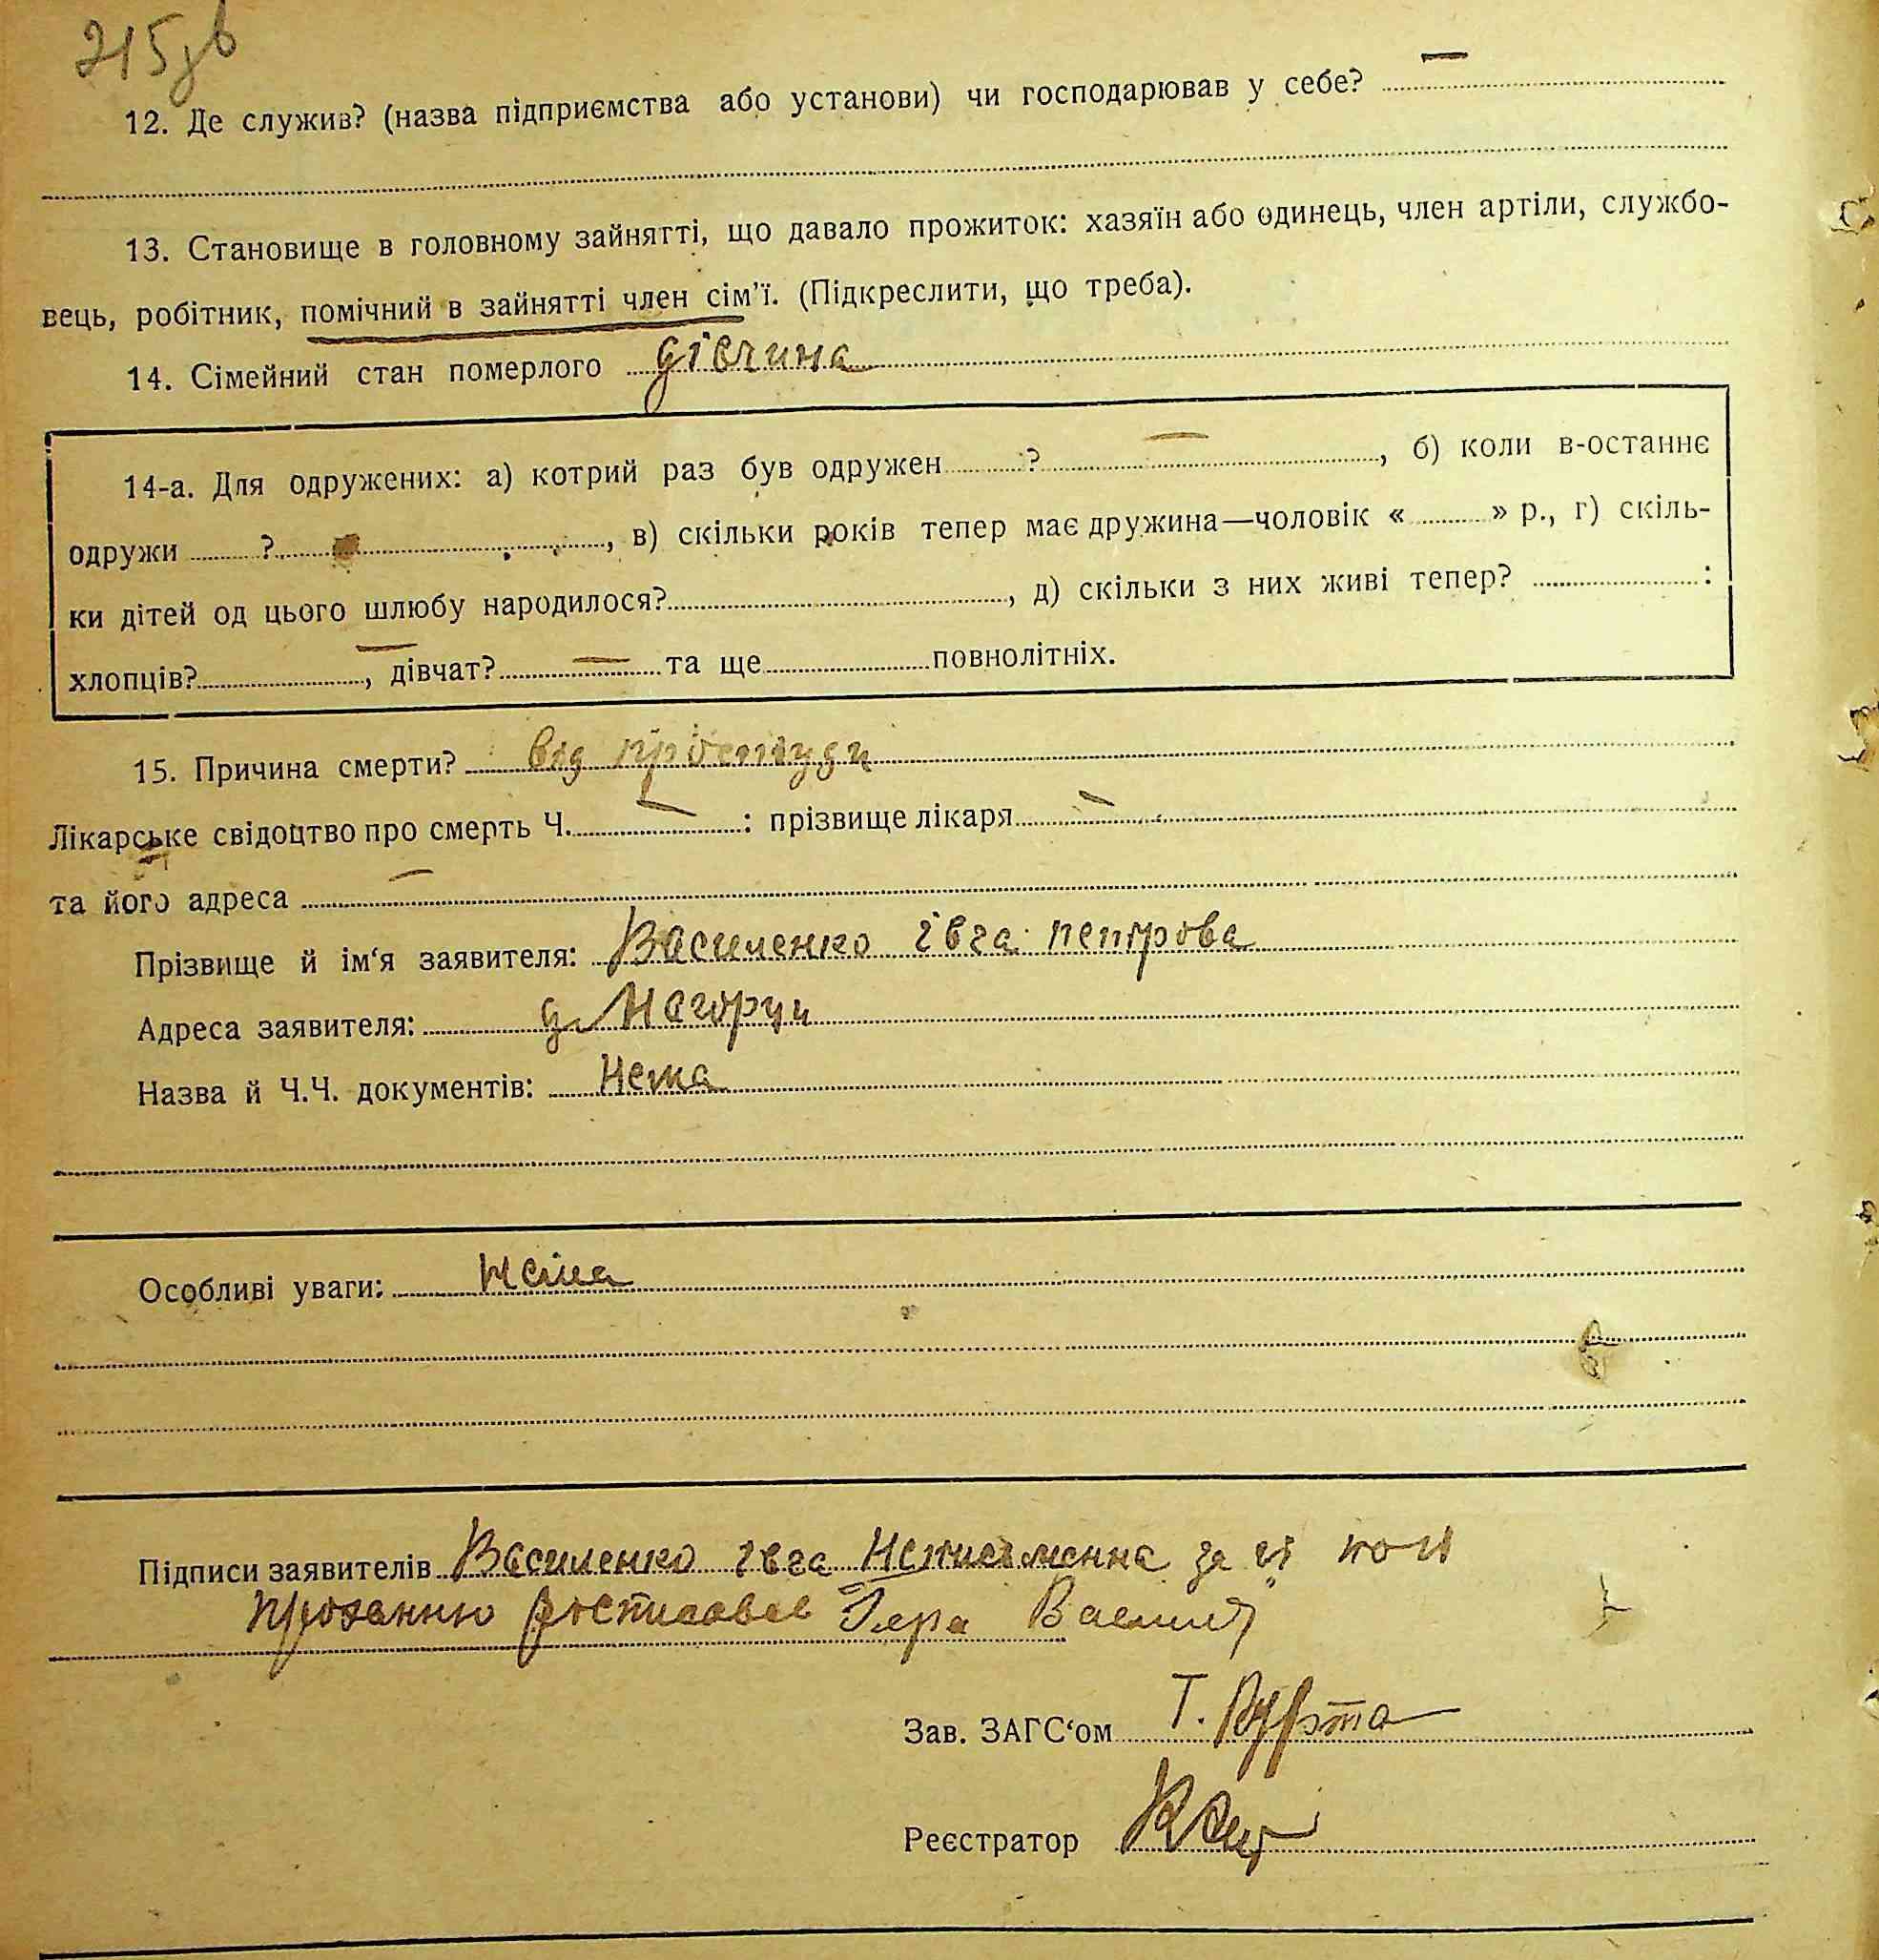 215зв
12. Де служив? (назва підприємства або установи) чи господарював у себе? —
13. Становище в головному зайнятті, що давало прожиток: хазяїн або одинець, член артіли, службо-
вець, робітник, помічний в зайнятті член сім'ї. (Підкреслити, що треба).
14. Сімейний стан померлого дівчина
14-а. Для одружених: а) котрий раз був одружен ? —, б) коли в-останнє
одружи ? , в) скільки років тепер має дружина—чоловік « » р., г) скіль-
ки дітей од цього шлюбу народилося? , д) скільки з них живі тепер? :
хлопців? —, дівчат? — та ще повнолітніх.
15. Причина смерти? від простуди
Лікарське свідоцтво про смерть Ч. — : прізвище лікаря —
та його адреса —
Прізвище й ім'я заявителя: Василенко івга петрова
Адреса заявителя:
Назва й Ч.Ч. документів: Нема
Особливі уваги: нема
Підписи заявителів Василенко івга Неписьменна за її
проханню
Зав. ЗАГС'ом Т.
Реєстратор